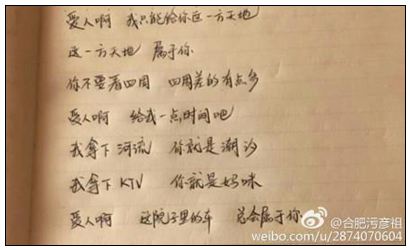 爱人啊 我只能给你这一方天地
这一方天地 属于你
你不要看四周 四周差的有点多
爱人啊 给我一点时间吧
我拿下河流 你就是潮汐
我拿下KTV 你就是妈咪
爱人啊 这院子里的车 总会属于你
@合肥污彦祖
weibo.com/u/2874070604